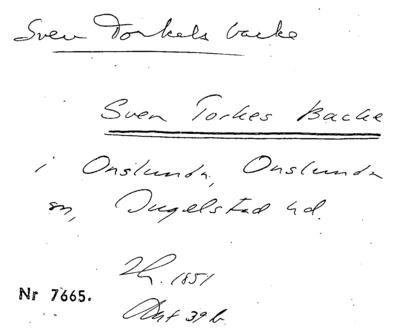 Sven Torkels backe
Sven Torkes Backe
i Onslunda, Onslunda
sn, Ingelstad hd.
1851
Nr 7665.
Akt 39 b.